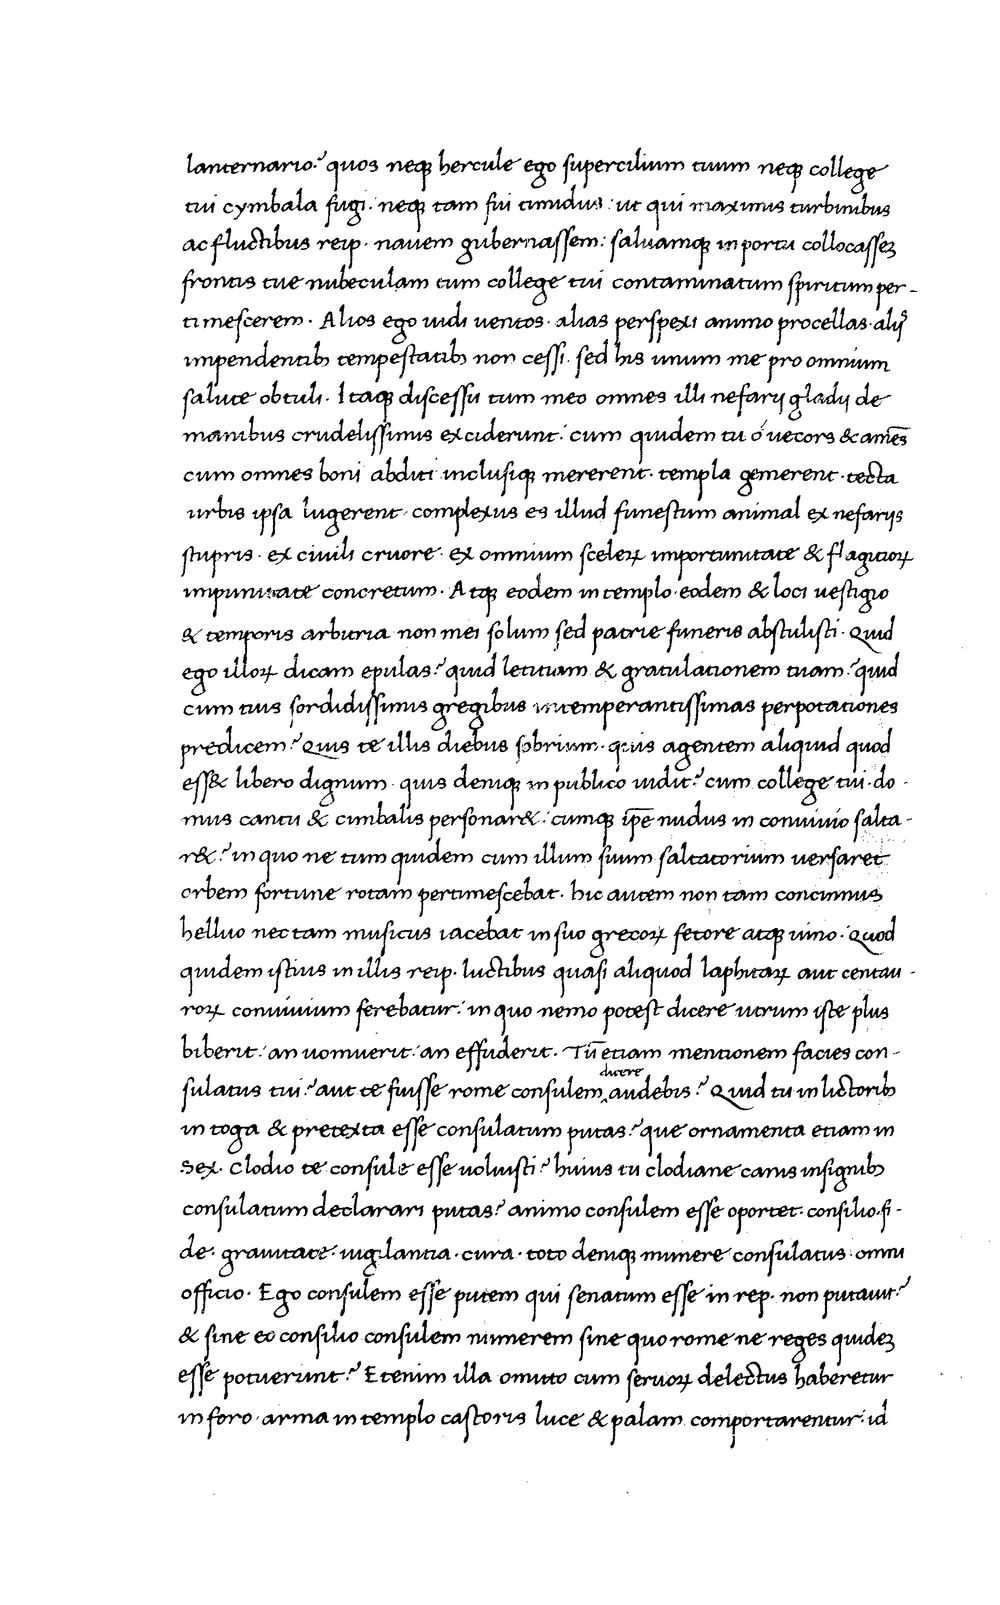 lanternario? quos neqꝫ hercule ego supercilium tuum neqꝫ college
tui cymbala fugi. neqꝫ tam fui timidus: ut qui maximis turbinibus
ac fluctibus reip. nauem gubernassem: saluamqꝫ in portu collocasseꝫ
frontis tue nubeculam tum college tui contaminatum spiritum per-
timescerem. Alios ego uidi uentos. alias perspexi animo procellas. alijs
impendentibꝫ tempestatibꝫ non cessi. sed his unum me pro omnium
salute obtuli. Itaqꝫ discessu tum meo omnes illi nefarij gladij de
manibus crudelissimis exciderunt: cum quidem tu o uecors & amēs
cum omnes boni abditi inclusiqꝫ mererent. templa gemerent. tecta
urbis ipsa lugerent. complexus es illud funestum animal ex nefarijs
stupris. ex ciuili cruore. ex omnium sceleꝝ importunitate & flagitioꝝ
impunitate concretum. Atqꝫ eodem in templo. eodem & loci uestigio
& temporis arbitria non mei solum sed patrie funeris abstulisti. Quid
ego illoꝝ dicam epulas? quid letitiam & gratulationem tuam? quid
cum tuis sordidissimis gregibus intemperantissimas perpotationes
predicem? Quis te illis diebus sobrium. quis agentem aliquid quod
ess& libero dignum. quis deniqꝫ in publico uidit? cum college tui. do-
mus cantu & cimbalis personar&: cumqꝫ ip̄e nudus in conuiuio salta-
r&? in quo ne tum quidem cum illum suum saltatorium uersaret
orbem fortune rotam pertimescebat. hic autem non tam concinnus
helluo nec tam musicus iacebat in suo grecoꝝ fetore atqꝫ uino. Quod
quidem istius in illis reip. luctibus quasi aliquod laphitaꝝ aut centau-
roꝝ conuiuium ferebatur: in quo nemo potest dicere utrum iste plus
biberit: an uomuerit: an effuderit. Tū etiam mentionem facies con-
sulatus tui? aut te fuisse rome consulem dicere audebis? Quid tu in lictoribꝫ
in toga & pretexta esse consulatum putas? que ornamenta etiam in
Sex. Clodio te consule esse uoluisti? huius tu clodiane canis insignibꝫ
consulatum declarari putas? animo consulem esse oportet. consilio. fi-
de. grauitate. uigilantia. cura. toto deniqꝫ munere consulatus. omni
officio. Ego consulem esse putem qui senatum esse in rep. non putauit?
& sine eo consilio consulem numerem sine quo rome ne reges quideꝫ
esse potuerunt? Etenim illa omitto cum seruoꝝ delectus haberetur
in foro. arma in templo castoris luce & palam comportarentur: id